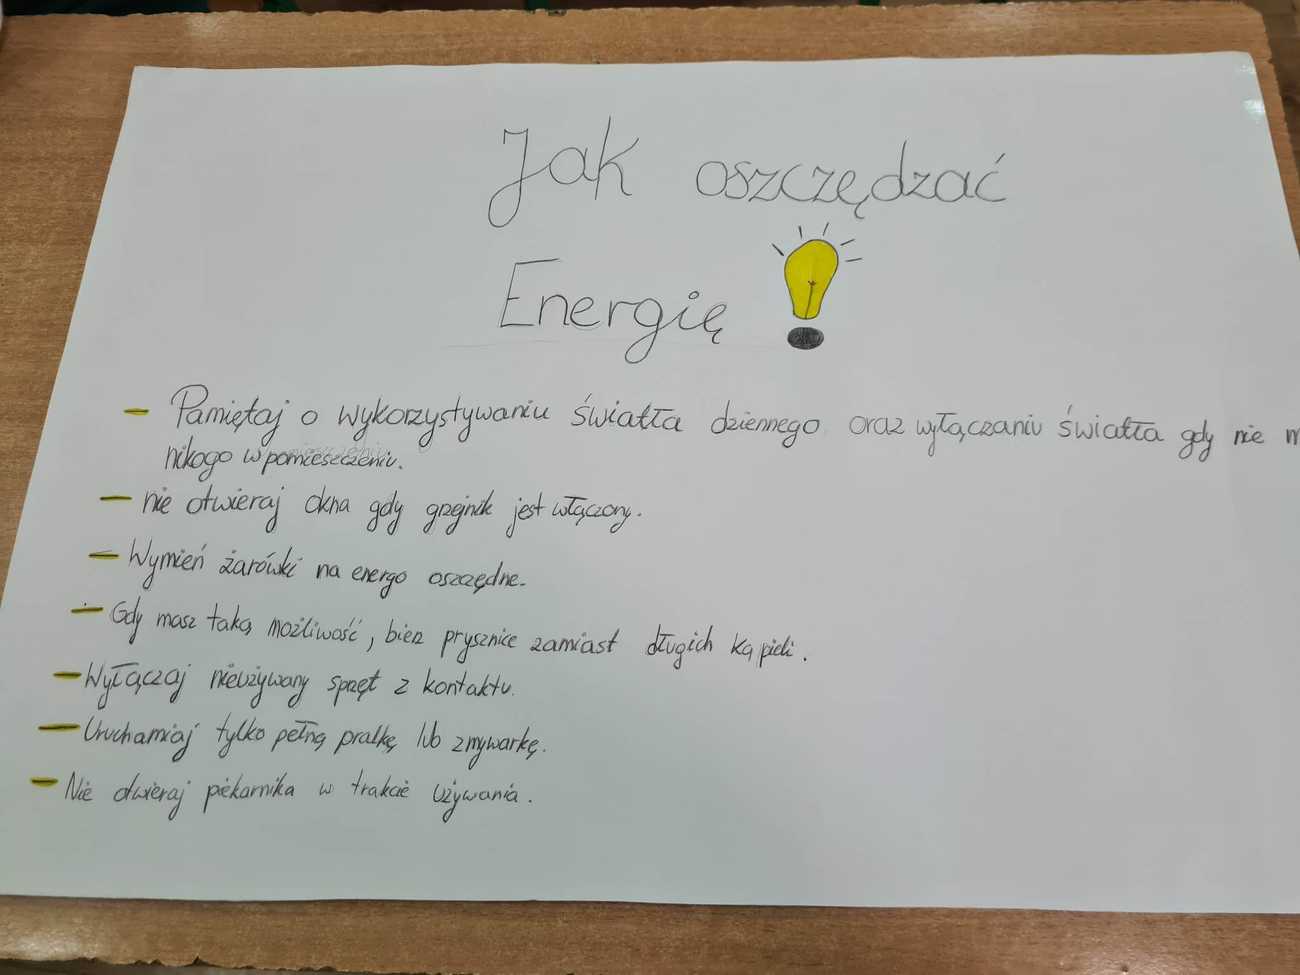 Jak oszczędzać
Energię
- Pamiętaj o wykorzystywaniu światła dziennego oraz wyłączaniu światła gdy nie
nikogo w pomieszczeniu.
- nie otwieraj okna gdy grzejnik jest włączony.
- Wymień żarówki na energo oszczędne.
- Gdy masz taką możliwość, bierz prysznice zamiast długich kąpieli.
- Wyłączaj nieużywany sprzęt z kontaktu.
- Uruchamiaj tylko pełną pralkę lub zmywarkę.
- Nie otwieraj piekarnika w trakcie używania.